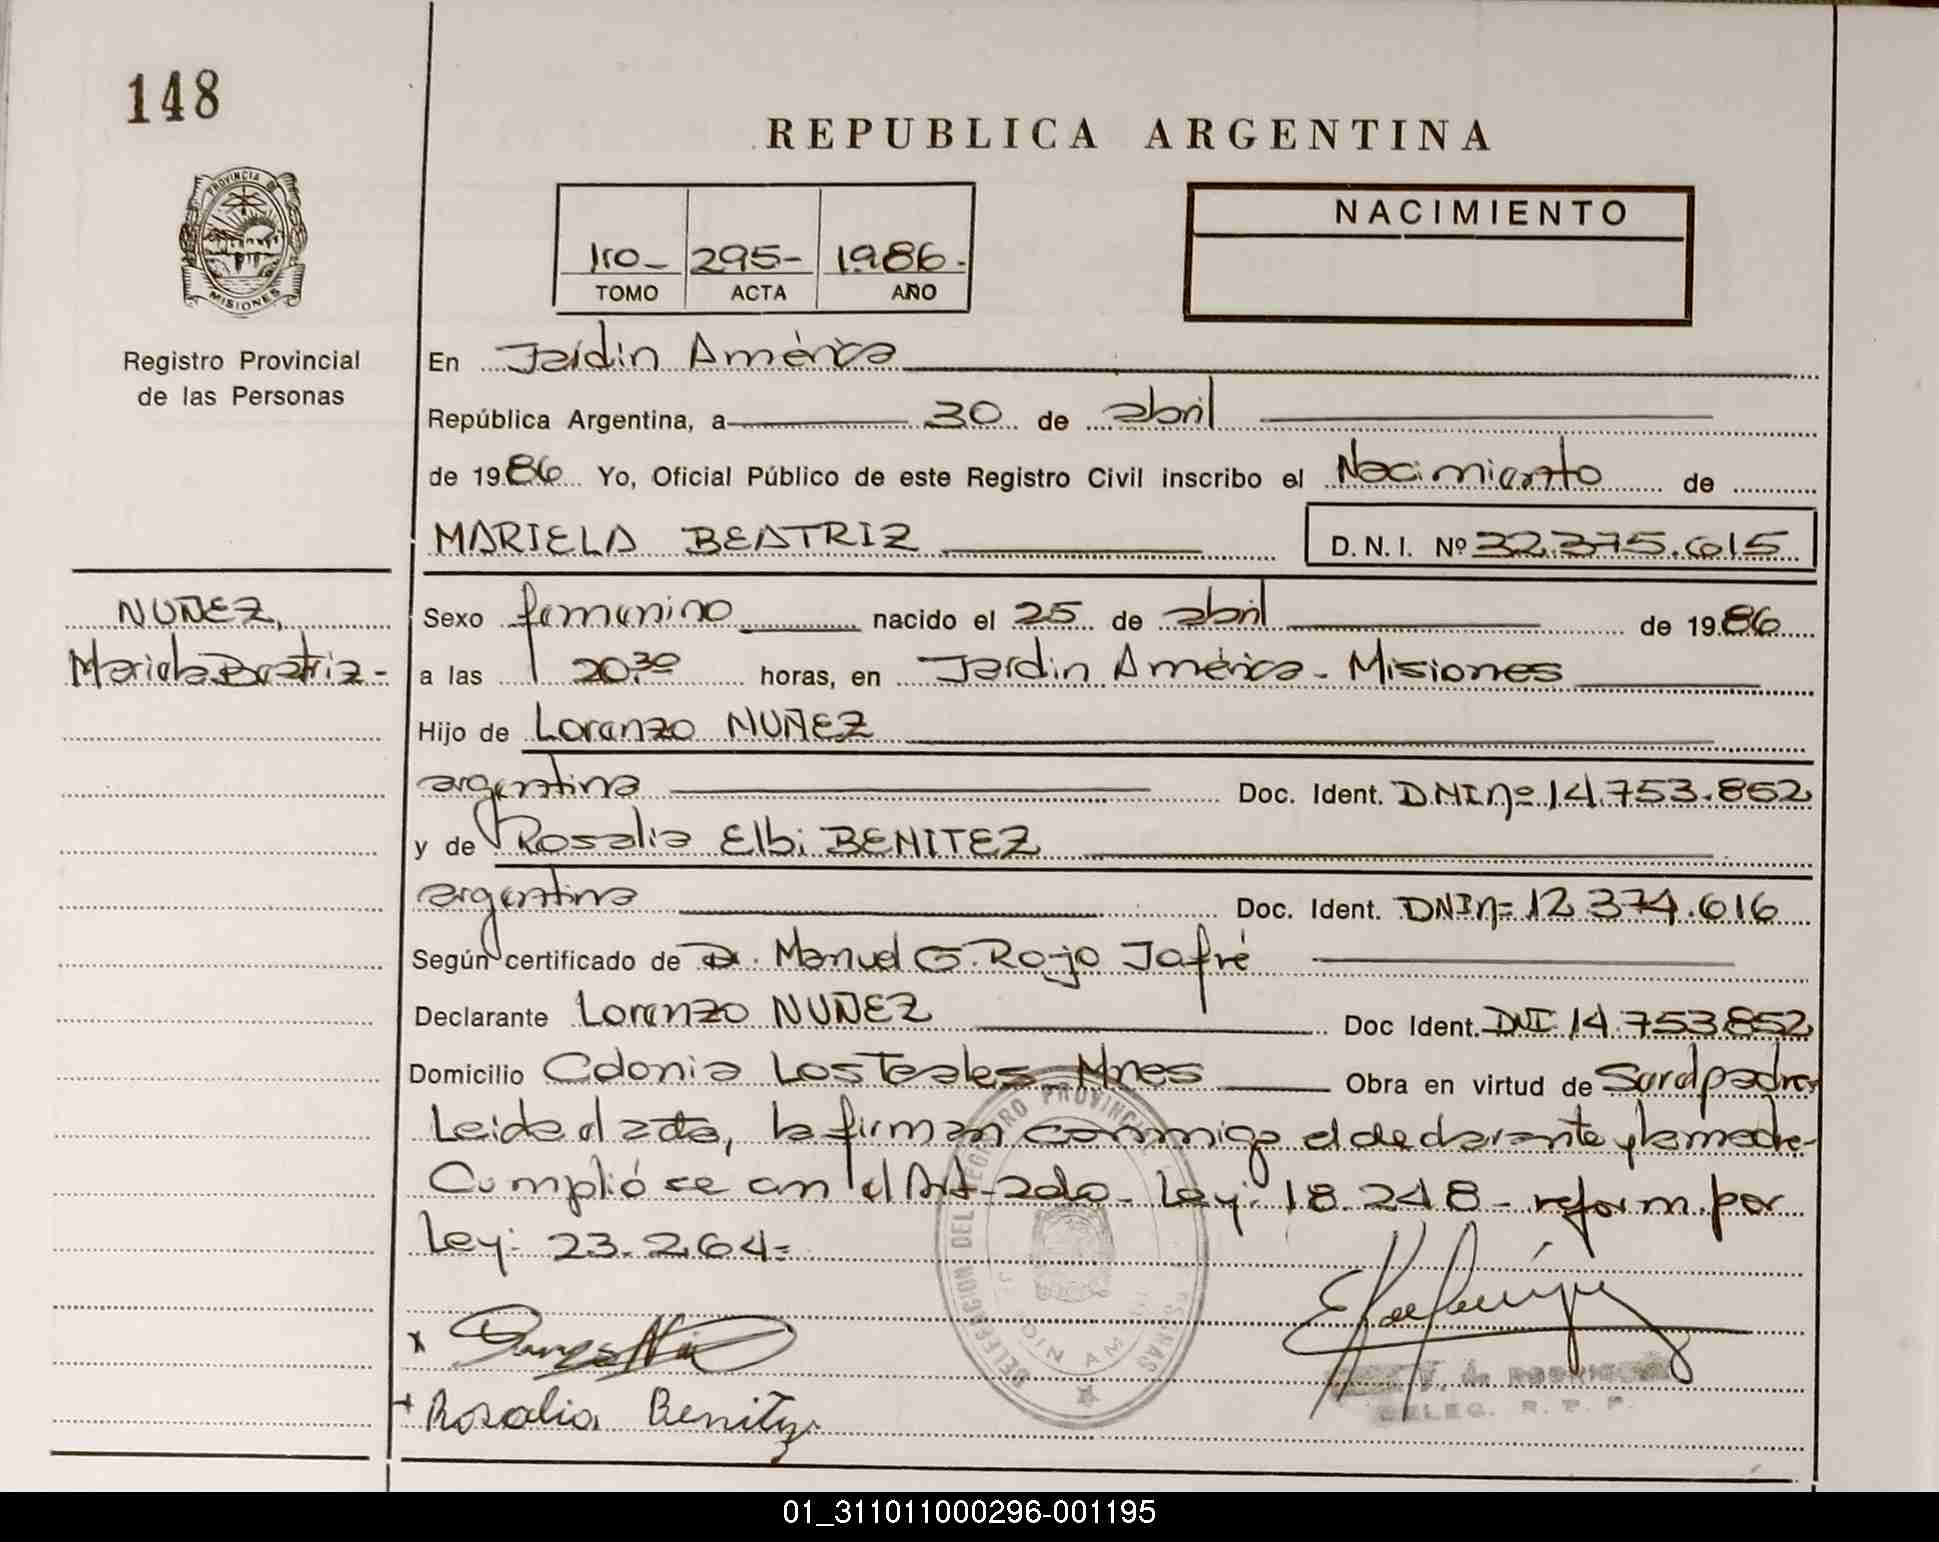 148
REPUBLICA ARGENTINA
PROVINCIA DE
MISIONES
Registro Provincial
de las Personas
NACIMIENTO
1ro- 295- 1986.-
TOMO ACTA AÑO
En Jardín América
República Argentina, a 30 de abril
de 1986 Yo, Oficial Público de este Registro Civil inscribo el Nacimiento de
MARIELA BEATRIZ D.N.I. Nº 32.375.615
NUÑEZ,
Mariela Beatriz-
Sexo femenino nacido el 25 de abril de 1986
a las 20,30 horas, en Jardín América - Misiones
Hijo de Lorenzo NUÑEZ
argentina Doc. Ident. DNI nº 14.753.852
y de Rosalia Elbi BENITEZ
argentina Doc. Ident. DNI nº 12.374.616
Según certificado de Dr. Manuel G. Rojo Jafré
Declarante Lorenzo NUÑEZ Doc Ident. DNI 14.753.852
Domicilio Colonia Los Teales - Mnes Obra en virtud de Ser el padre-
Leida el acta, la firman conmigo el declarante y la madre-
Cumplióse con el Art-2do- Ley: 18.248 - reform. por
Ley: 23.264=
x
+ Rosalia Benitez
DELEGACION DEL REGISTRO PROVINCIAL
DELEG. R. P. P.
01_311011000296-001195